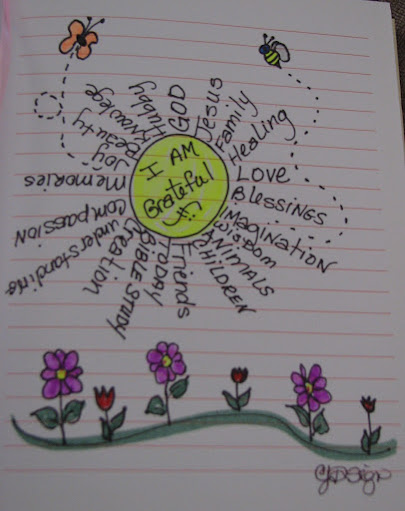 I AM
Grateful
4..?
GOD
Jesus
Family
Healing
LOVE
BLESSINGS
IMAGINATION
WISDOM
ANIMALS
CHILDREN
Friends
TODAY
BIBLE STUDY
Creation
understanding
compassion
memories
Joy
Beauty
Knowlege
Hubby